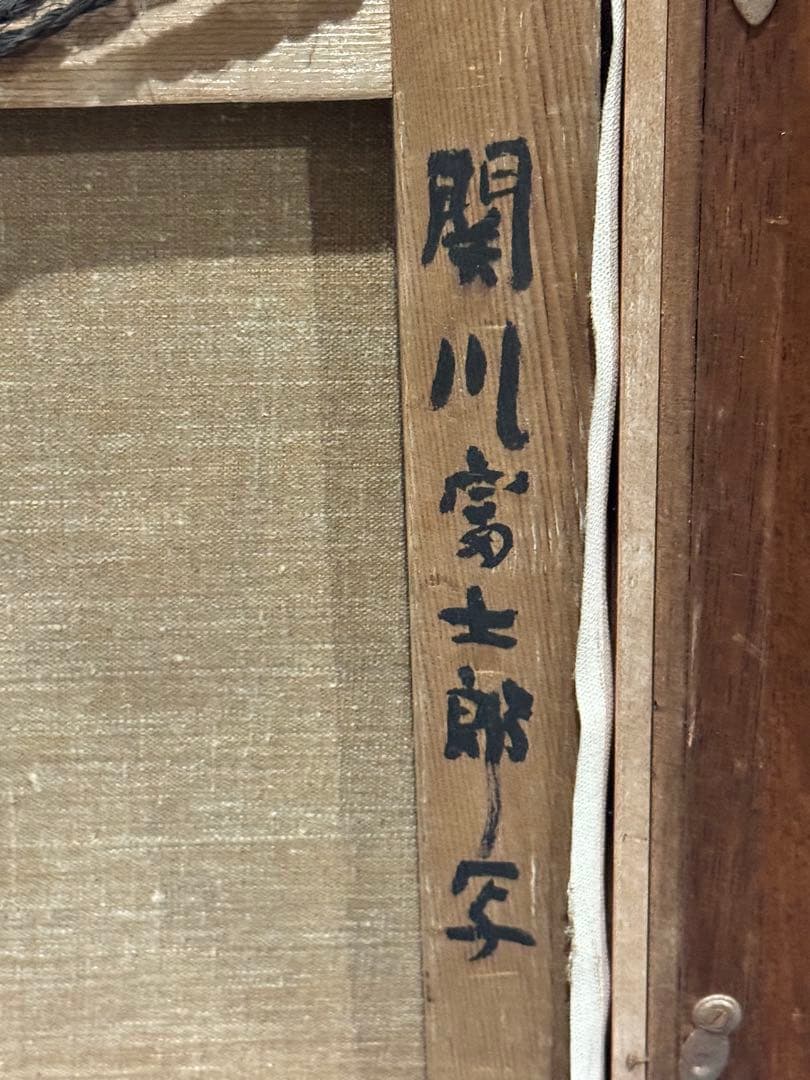 関川富士郎写